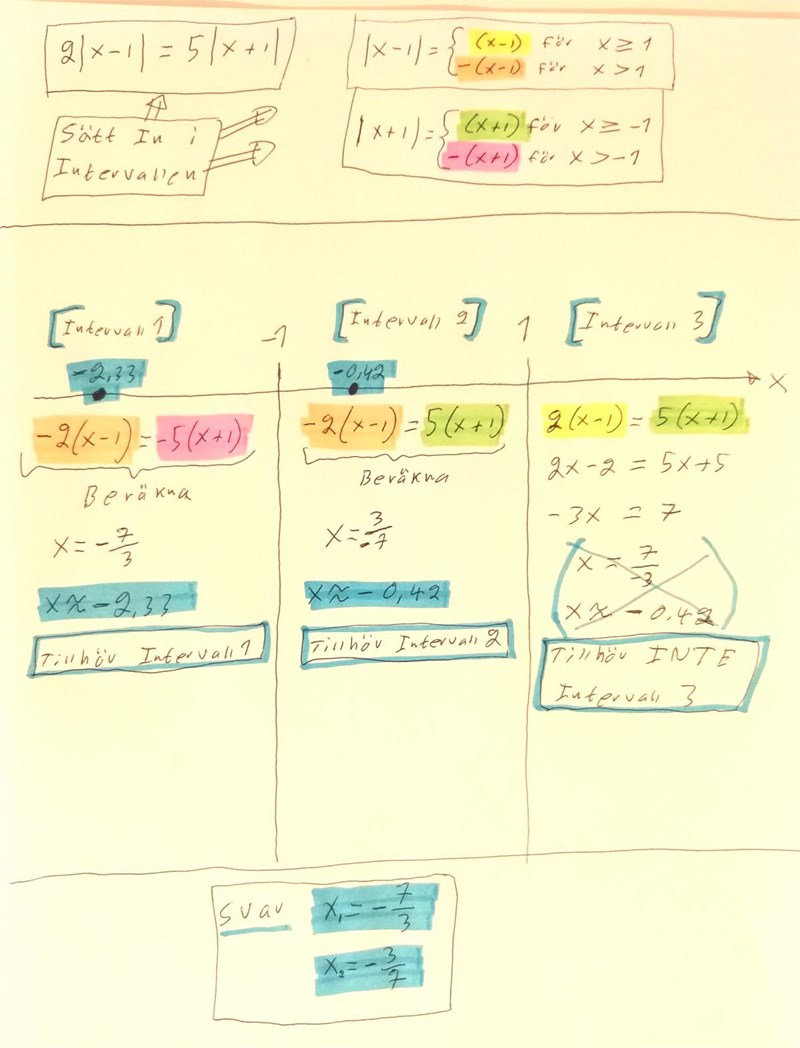 2|x-1| = 5|x+1|
|x-1| = { (x-1) för x ≥ 1
-(x-1) för x > 1
Sätt In i
Intervallen
|x+1| = { (x+1) för x ≥ -1
-(x+1) för x > -1
[Intervall 1]
-1
[Intervall 2]
1
[Intervall 3]
-2,33
-0,42
x
-2(x-1) = -5(x+1)
Beräkna
x = -7/3
x ≈ -2,33
Tillhör Intervall 1
-2(x-1) = 5(x+1)
Beräkna
x = 3/-7
x ≈ -0,42
Tillhör Intervall 2
2(x-1) = 5(x+1)
2x-2 = 5x+5
-3x = 7
x = 7/-3
x ≈ -0,42
Tillhör INTE
Intervall 3
Svar
x₁ = -7/3
x₂ = -3/7